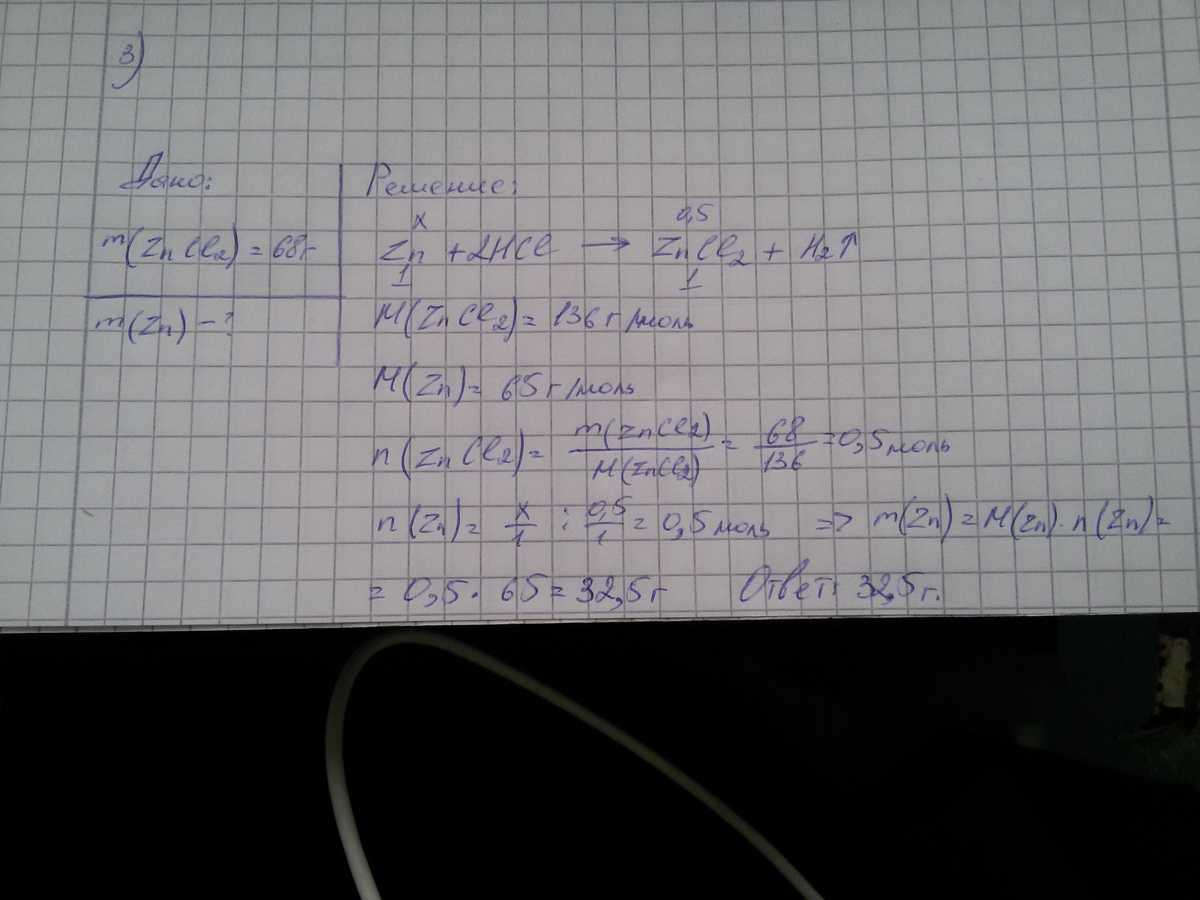 3)
Дано:
m(ZnCl₂) = 68г
m(Zn) – ?
Решение:
x 0,5
Zn + 2HCl → ZnCl₂ + H₂↑
1 1
M(ZnCl₂) = 136 г/моль
M(Zn) = 65 г/моль
n(ZnCl₂) = m(ZnCl₂)/M(ZnCl₂) = 68/136 = 0,5 моль
n(Zn) = x/1 : 0,5/1 = 0,5 моль => m(Zn) = M(Zn) · n(Zn) =
= 0,5 · 65 = 32,5 г Ответ: 32,5 г.